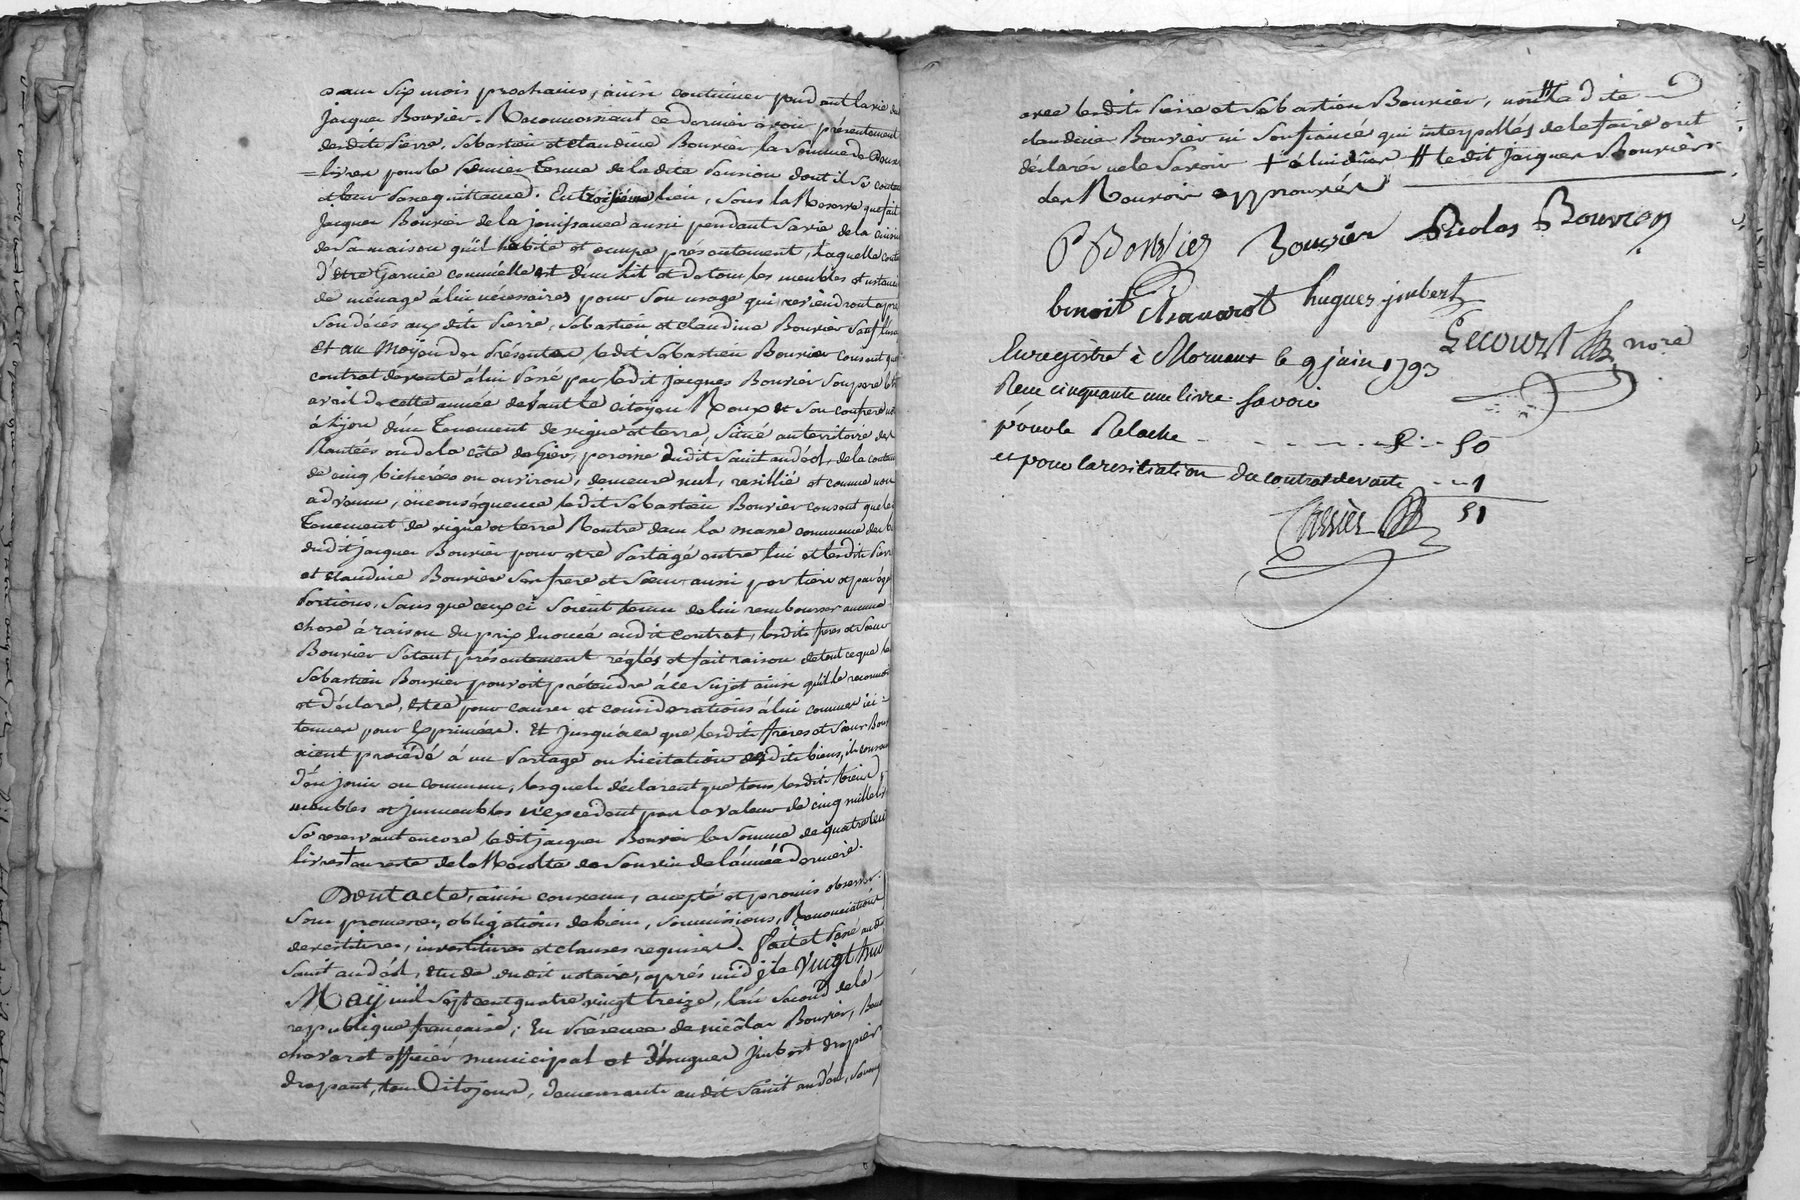 dans six mois prochains, ainsi continuer pend ant la vie du
Jacques Bouvier. Reconnoissant ce dernier avoir présentement
desdits Pierre, Sébastien et claudine Bouvier la somme de
livres pour le premier terme de la dite pension dont il se contente
et leur passe quittance. En troisième lieu, sous la Reserve que fait
Jacques Bouvier de la jouissance aussi pendant sa vie de la cuisine
de sa maison qu'il habite et occupe présentement, laquelle
d'être Garnie comm'elle est d'un lit et de tous les meubles et ustanciles
de ménage à lui nécessaires pour son usage qui reviendront après
son décès aux dits Pierre, Sébastien et claudine Bouvier
Et au Moÿen des présentes ledit Sébastien Bouvier consent que
contrat de vente à lui passé par ledit Jacques Bouvier son pere le
avril de cette année devant le citoyen Roux et son confrere
à Lyon d'un tenement de vigne et terre, situé au territoire des
Plantées ou de la côte de Gier, paroisse dudit Saint andéol, de la contenue
de cinq bicherées ou environ, demeure nul, resillié et comme non
advenu, en conséquence ledit Sébastien Bouvier consent que le
tenement de vigne et terre Rentre dans la masse commune des
dudit jacques Bouvier pour être partagé entre lui et lesdits Pierre
et claudine Bouvier ses frere et sœur aussi par tiers et par égales
Portions, sans que ceux ci soient tenus de lui rembourser aucune
chose à raison du prix énoncé audit contrat, lesdits freres et sœur
Bouvier s'étant présentement réglés et fait raison de tout ce que le
Sébastien Bouvier pouvoit prétendre à ce sujet ainsi qu'il le reconnoit
et déclare, et ce pour causes et considérations à lui connues ici
tenues pour Exprimées. Et jusqu'à ce que lesdits frères et sœur Bouvier
aient procédé à un Partage ou licitation desdits biens, ils
d'en jouir en commun, lesquels déclarent que tous lesdits biens
meubles et jmmeubles n'excedent pas la valeur de cinq mille
se reservant encore ledit jacques Bouvier la somme de quatre cent
livres + au reste de la Récolte de son vin de l'année derniere.
Dont acte, ainsi convenu, accepté et promis observer
sous promesses, obligations de biens, soumissions, Renonciations
devestitures, investitures et clauses requises. fait et Passé audit
Saint andéol, Etude dudit notaire, après midj le vingt huit
Maÿ mil sept cent quatre vingt treize, l'an second de la
republique française; En Présence de nicolas Bouvier, Benoit
chavarot officier municipal et d'hugues jmbert drapier
drapant, tous Citoyens, demeurants audit Saint andéol, soussignés
avec lesdits Pierre et Sébastien Bouvier, non # la dite
claudine Bouvier ni son fiancé qui interpellés de le faire ont
déclaré ne le savoir + à lui dües # le dit jacques Bouvier
des Renvois approuvés
P Bouvier Bouvier Nicolas Bouvier
benoit Chavarot hugues jmbert
Lecourt nore
Enregistré à Mornant le 9 juin 1793
Reçu cinquante une livre savoir
pour le Relache 50
et pour la resiliation du contrat de vente 1
51